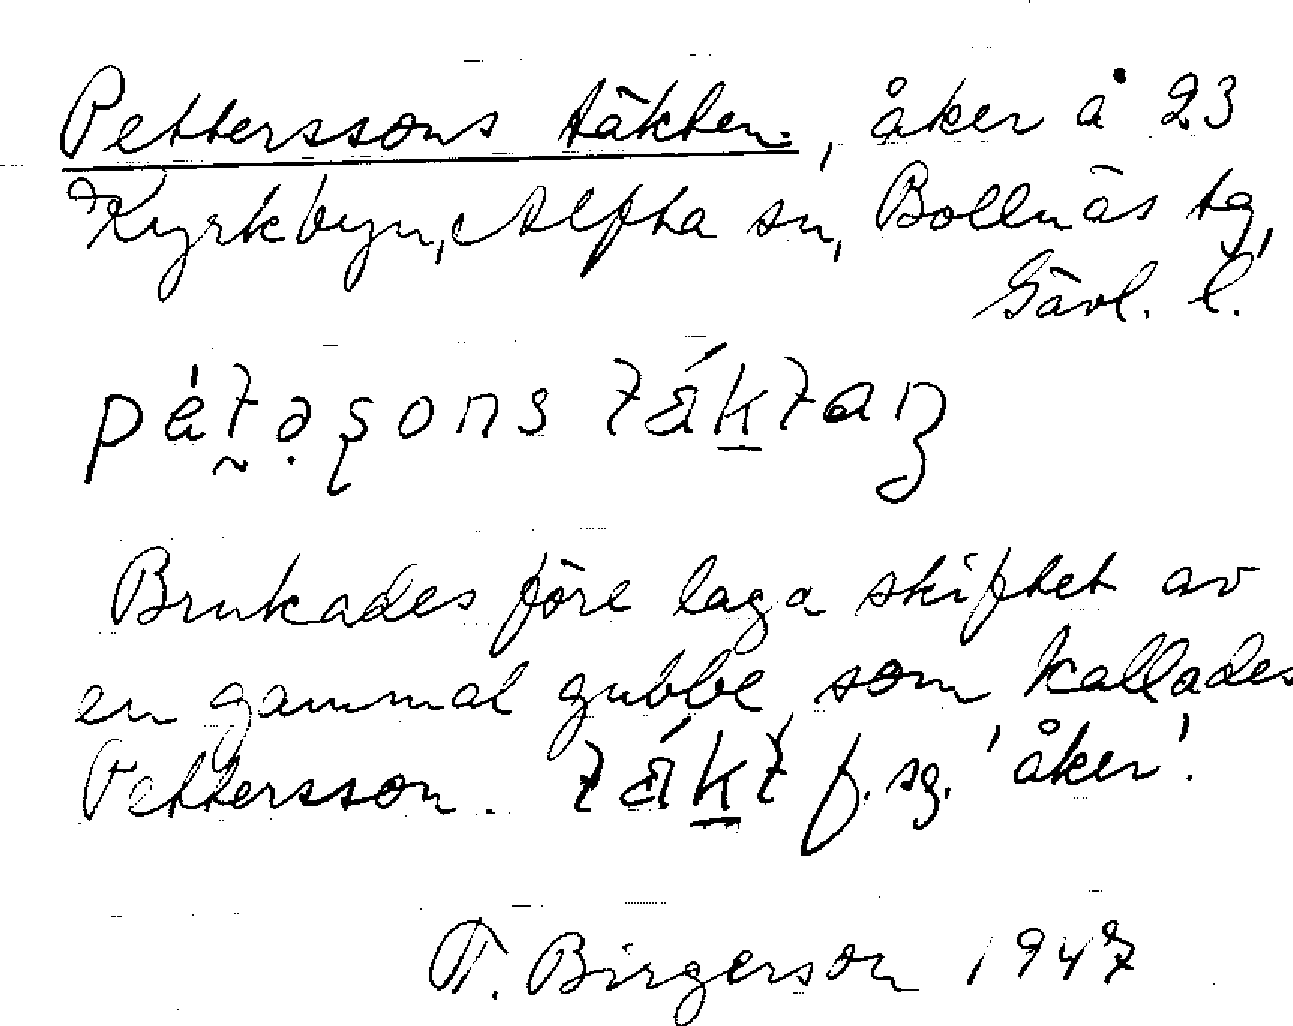 Petterssons täkten, åker å 23
Kyrkbyn, Alfta sn, Bollnäs tg,
Gävl. l.
Brukades före laga skiftet av
en gammal gubbe, som kallades
Pettersson. f. sg. 'åker'.
T. Birgerson 1947